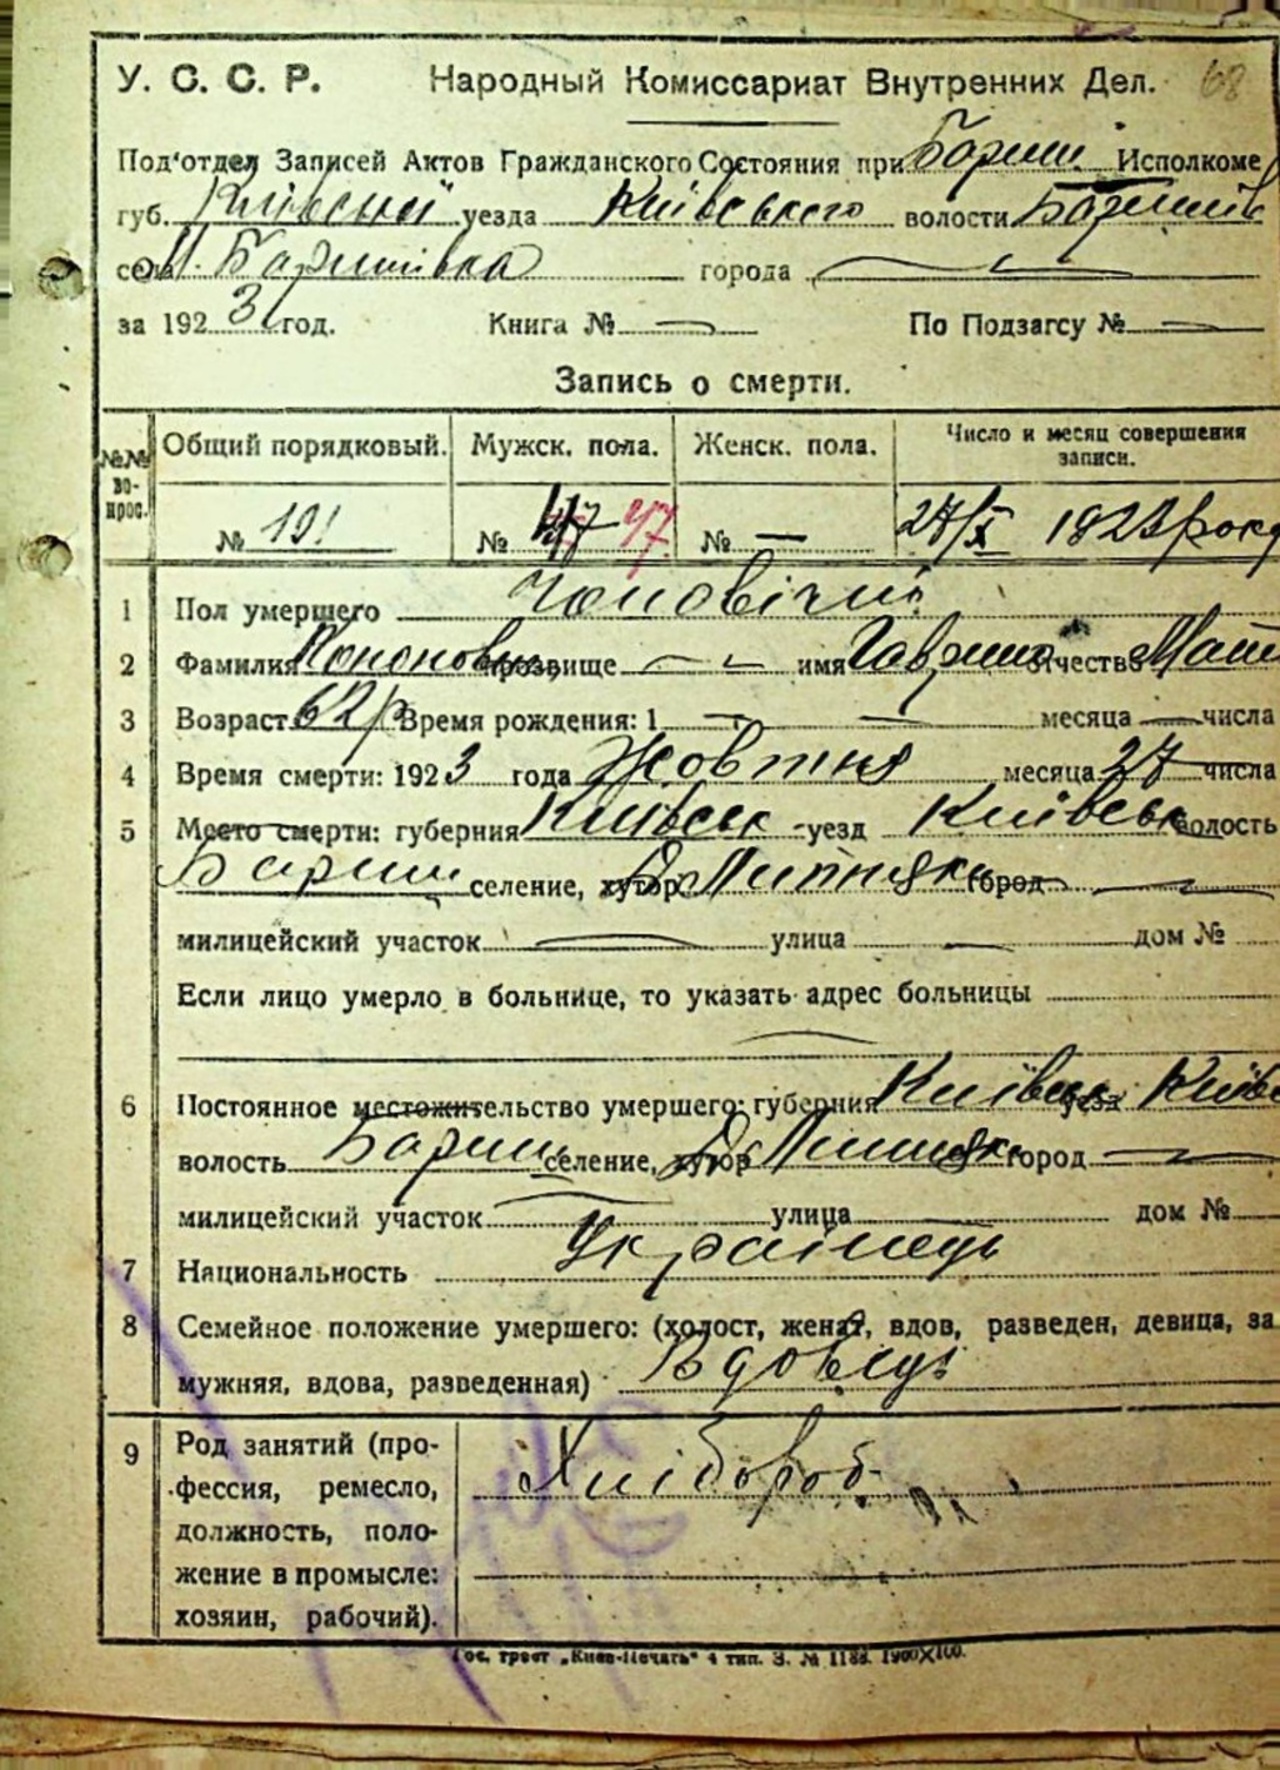 У. С. С. Р. Народный Комиссариат Внутренних Дел. 68
Под'отдел Записей Актов Гражданского Состояния при Бориш. Исполкоме
губ. Київської уезда Київського волости Баришів
села М. Баришівка города —
за 1923 год. Книга № — По Подзагсу № —
Запись о смерти.
№№ вопрос. Общий порядковый. Мужск. пола. Женск. пола. Число и месяц совершения записи.
№ 191 № 47 47 № — 27/X 1923 року
1 Пол умершего Чоловічий
2 Фамилия Кононович прозвище — имя Гаврило отчество Мат
3 Возраст 62 р Время рождения: 1 — г — месяца — числа
4 Время смерти: 1923 года Жовтня месяца 27 числа
5 Место смерти: губерния Київськ уезд Київськ волость
Бариш селение, хутор город —
милицейский участок — улица — дом №
Если лицо умерло в больнице, то указать адрес больницы
—
6 Постоянное местожительство умершего: губерния Київськ уезд Київс
волость Бариш селение, хутор город —
милицейский участок — улица — дом №
7 Национальность Українець
8 Семейное положение умершего: (холост, женат, вдов, разведен, девица, за
мужняя, вдова, разведенная) Вдовець
9 Род занятий (про-
фессия, ремесло,
должность, поло-
жение в промысле:
хозяин, рабочий).
Хлібороб
Гос. трест „Киев-Печать" 4 тип. З. № 1188. 1900×100.